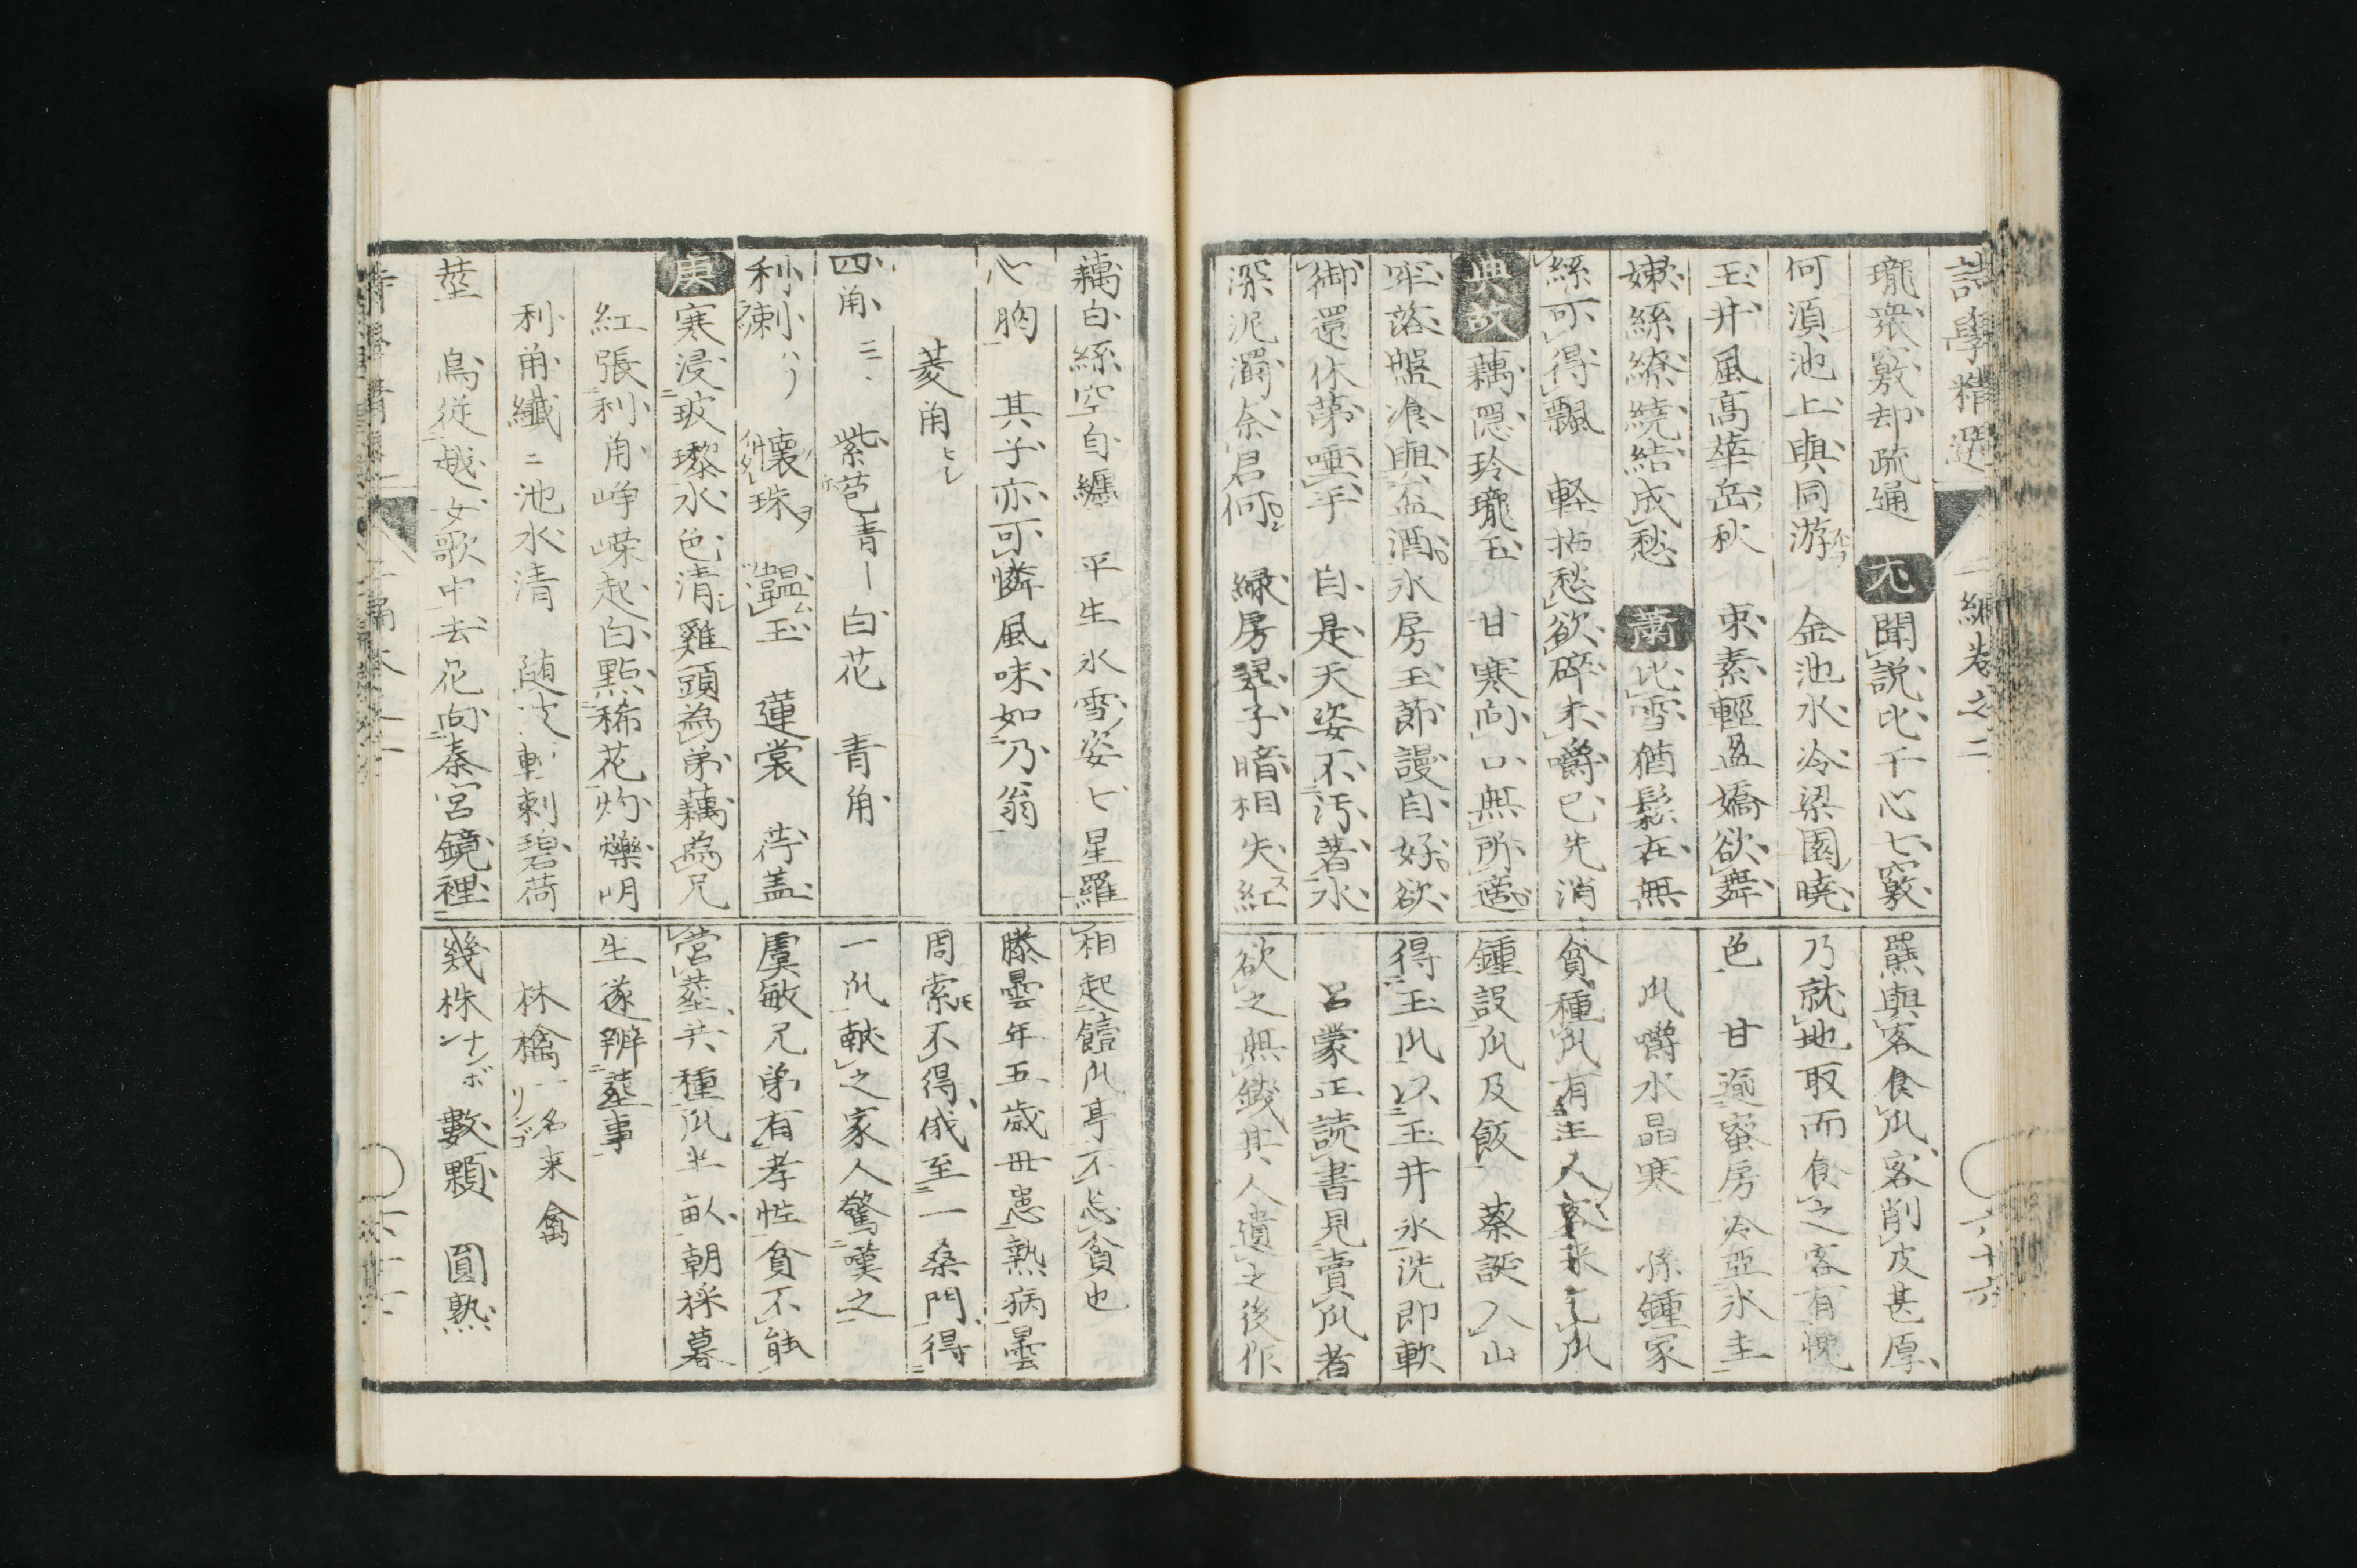 詩學精選 二編卷之二 六十六
瓏衆竅却疏通 尤 聞說比干心七竅
何須池上與同游 金池水冷梁園曉
玉井風高華岳秋 束素輕盈嬌欲舞
嫩絲繚繞結成愁 蕭 比雪猶鬆在無
絲可得飄 軽拈愁欲碎未嚼已先消
典故 藕隠玲瓏玉 甘寒向口無所適
牢落盤飡與盃酒氷房玉莭謾自好欲
御還休莭唾手 自是天姿不汚著氷
深泥濁奈君何 緑房翠子暗相失紅
羞與客食瓜客削皮甚厚
乃就地取而食之客有愧
色 甘逾蜜房冷亞氷圭
瓜嚼水晶寒 孫鍾家
貧種瓜有三人客来乞瓜
鍾設瓜及飯 蔡誕入山
得玉瓜以玉井水洗即軟
呂蒙正読書見賣瓜者
欲之無錢其人遺之後作
藕白絲空自纏 平生氷雪姿七星羅
心胸 其子亦可憐風味如乃翁
菱角 ヒシ
四角 三、 紫芭青ー白花 青角
利刺 ハリ 懐珠ヲ 韞玉 蓮裳 荷蓋
庚 寒浸玻瓈水色清雞頭為弟藕為兄
紅張利角崢嶸起白點稀花灼爍明
利角纖ニ池水清 随波軟刺碧荷
莖 鳥從越女歌中去花向秦宮鏡裡
相起饐瓜亭不忘貧也
滕曇年五歳毋患熱病曇
周索不得俄至一桑門得
一瓜献之家人驚嘆之
虞敏兄弟有孝性貧不能
営𦵏共種瓜半畝朝採暮
生遂辨𦵏事
林檎 リンゴ 一名来禽
幾株 ナンボン 數顆 圓熟